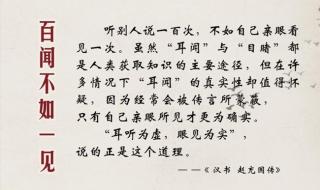 百闻不如一见
听别人说一百次，不如自己亲眼看
见一次。虽然“耳闻”与“目睹”都
是人类获取知识的主要途径，但在许
多情况下“耳闻”的真实性却值得怀
疑，因为经常会被传言所蒙蔽，
只有自己亲眼所见才更为确实。
“耳听为虚，眼见为实”，
说的正是这个道理。
——《汉书 赵充国传》